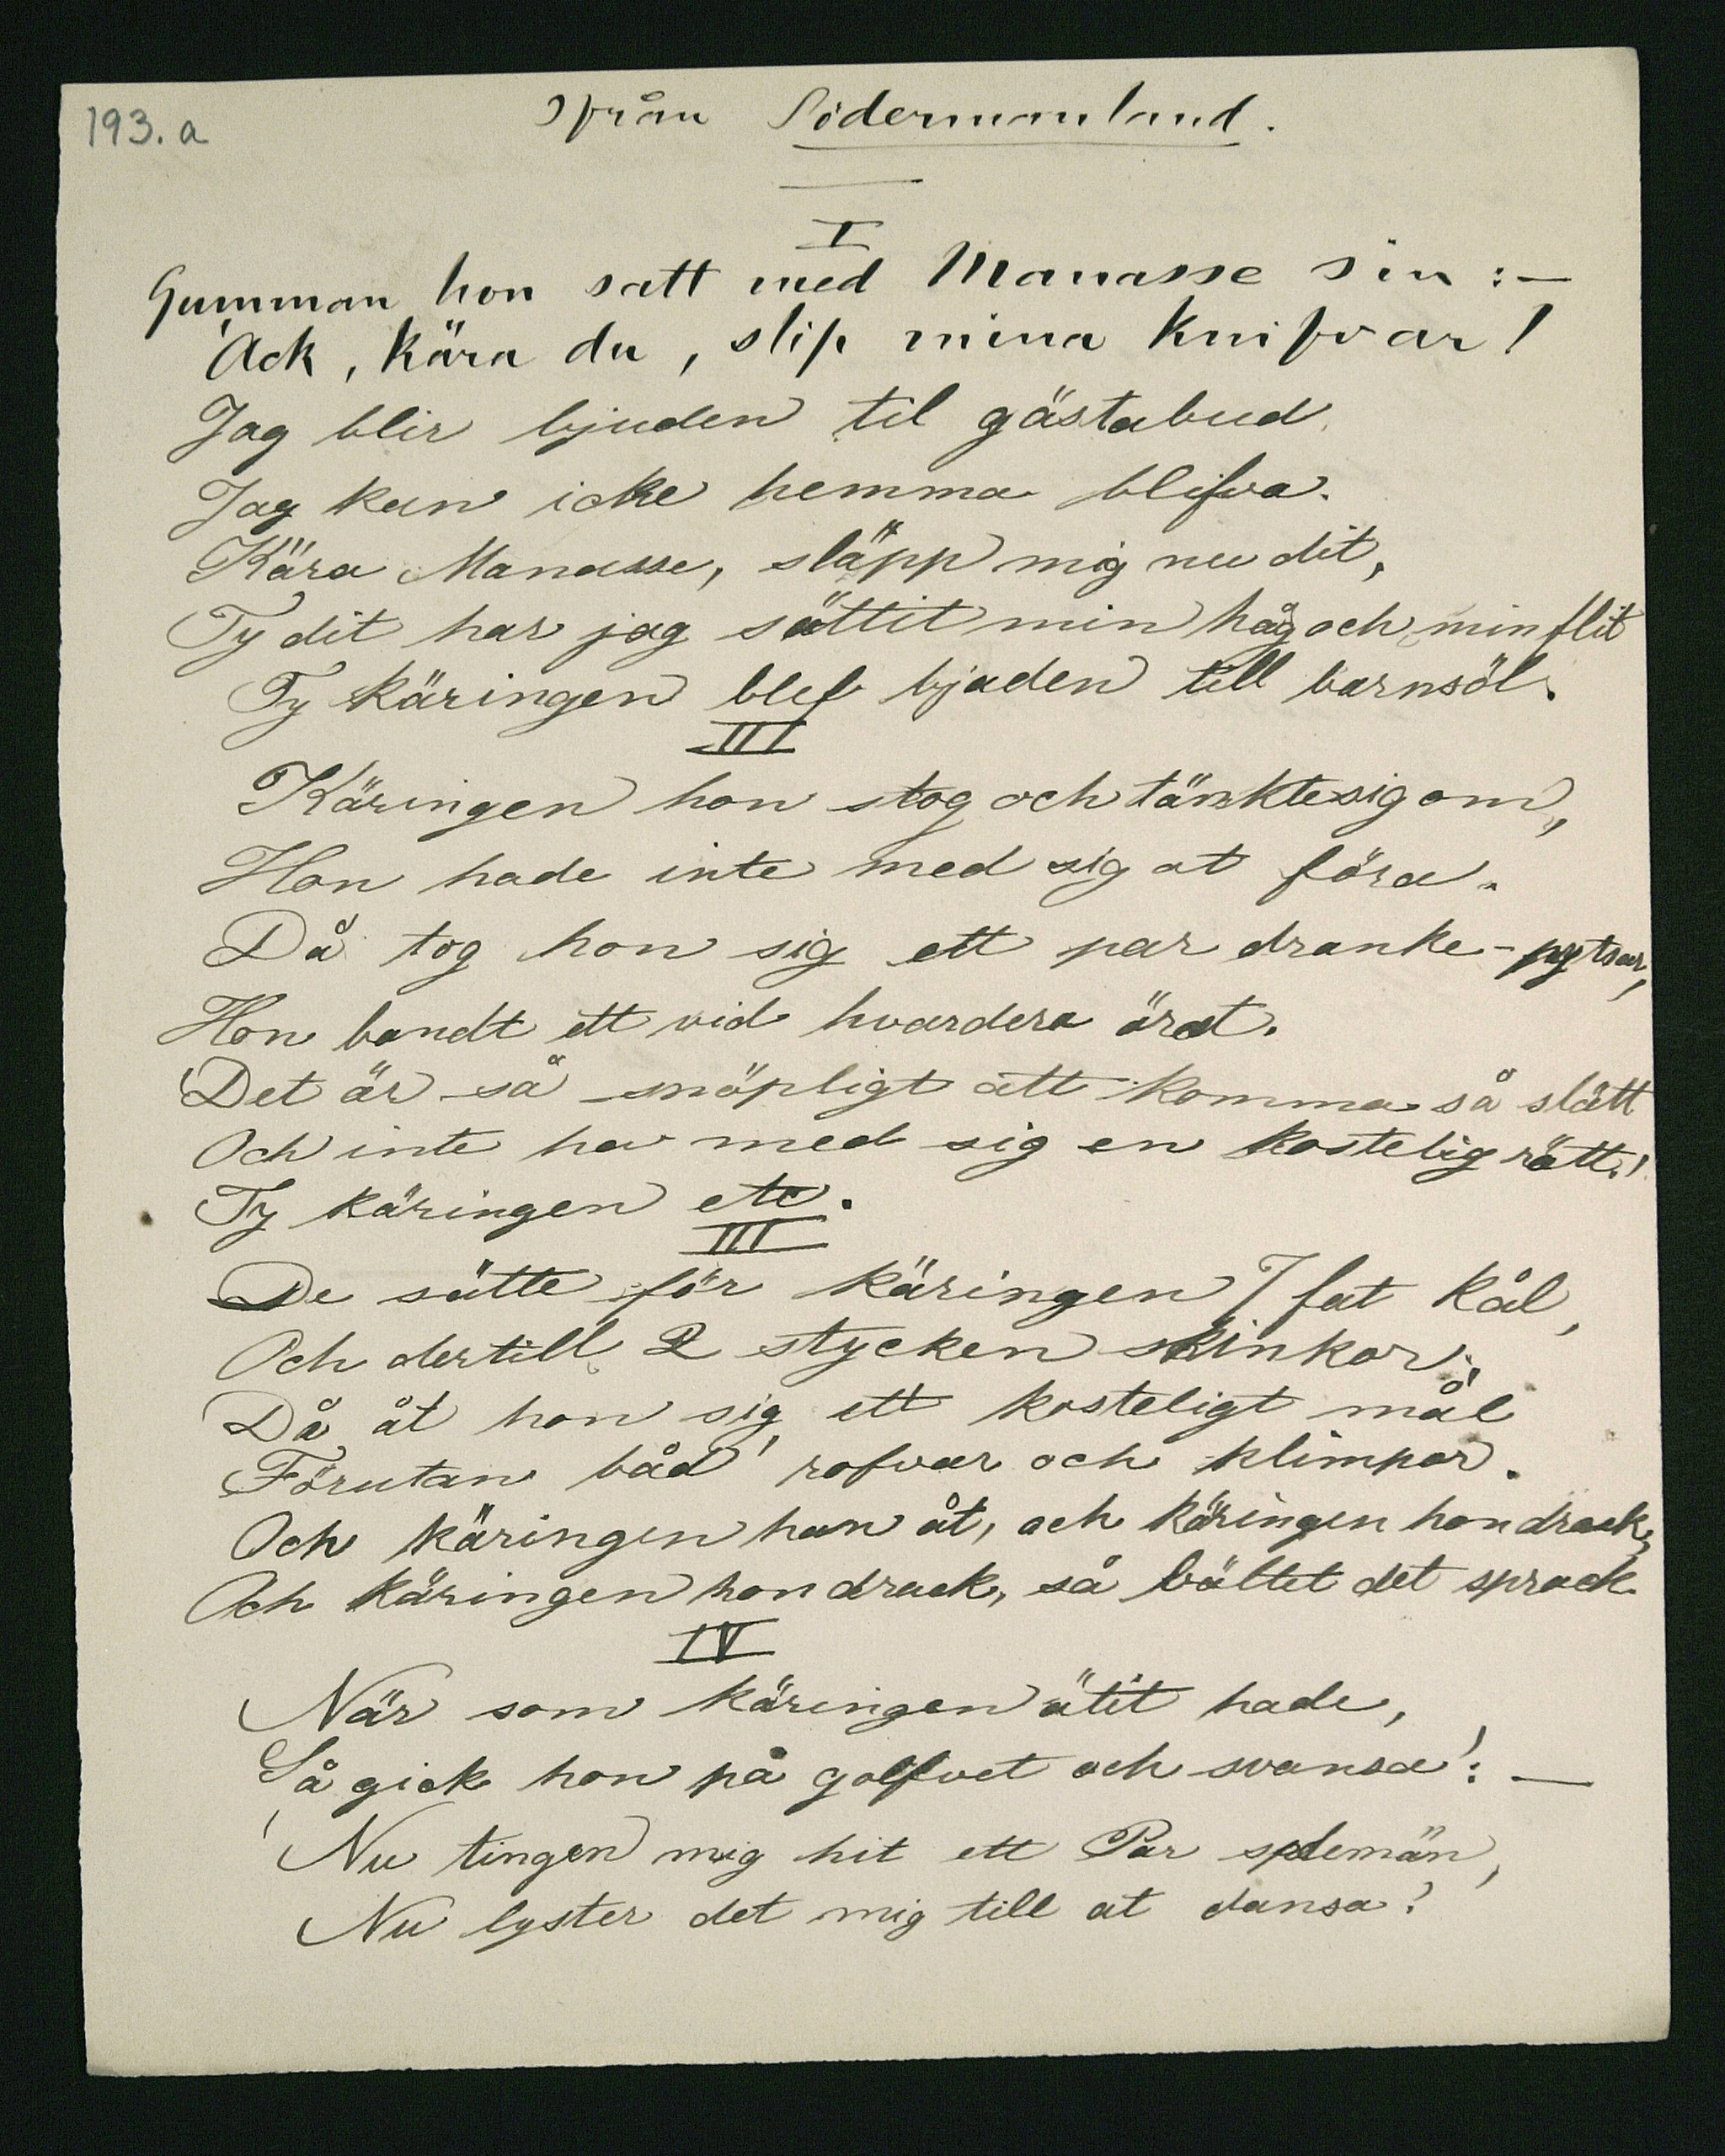 193. a
Ifrån Södermanland.
I
Gumman hon satt med Manasse sin: —
'Ack, kära du, slip mina knifvar!
Jag blir bjuden til gästabud
Jag kan icke hemma blifva.
Kära Manasse, släpp mig nu dit,
Ty dit har jag sättit min håg och min flit
Ty käringen blef bjuden till barnsöl.
III
Käringen hon stog och tänkte sig om,
Hon hade inte med sig at föra.
Då tog hon sig ett par dranke-pytsar,
Hon bandt ett vid hvardera örat.
'Det är så snöpligt att komma så slätt
Och inte ha med sig en kostelig rätt!'
Ty käringen etc.
III
De sätte för käringen 7 fat kål,
Och dertill 2 stycken skinkor;
Då åt hon sig ett kosteligt mål
Förutan båd' rofvar och klimpar.
Och käringen hon åt, och käringen hon drack,
Och käringen hon drack, så bältet det sprack
IV
När som käringen ätit hade,
Så gick hon på golfvet och svansa': —
'Nu tingen mig hit ett Par spelemän,
Nu lyster det mig till at dansa!